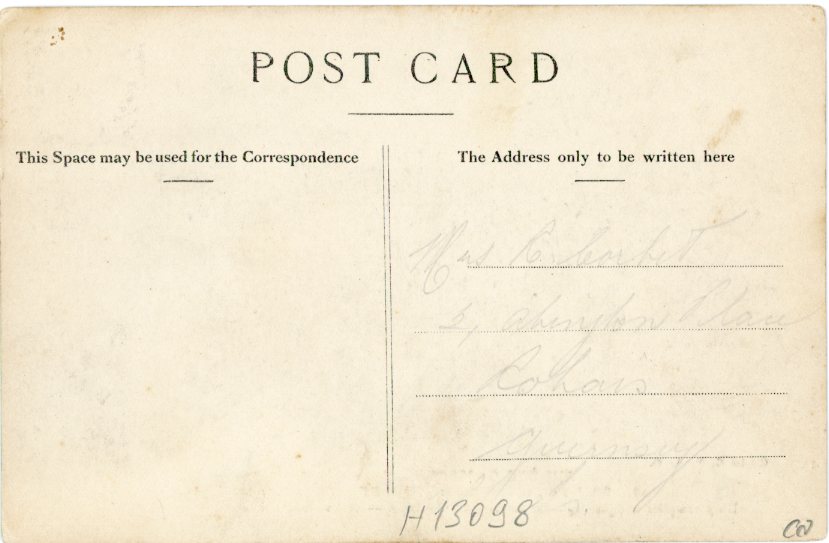 POST CARD
This Space may be used for the Correspondence
The Address only to be written here
Mrs Corbet
2, Abington Place
Rohais
Guernsey
H13098